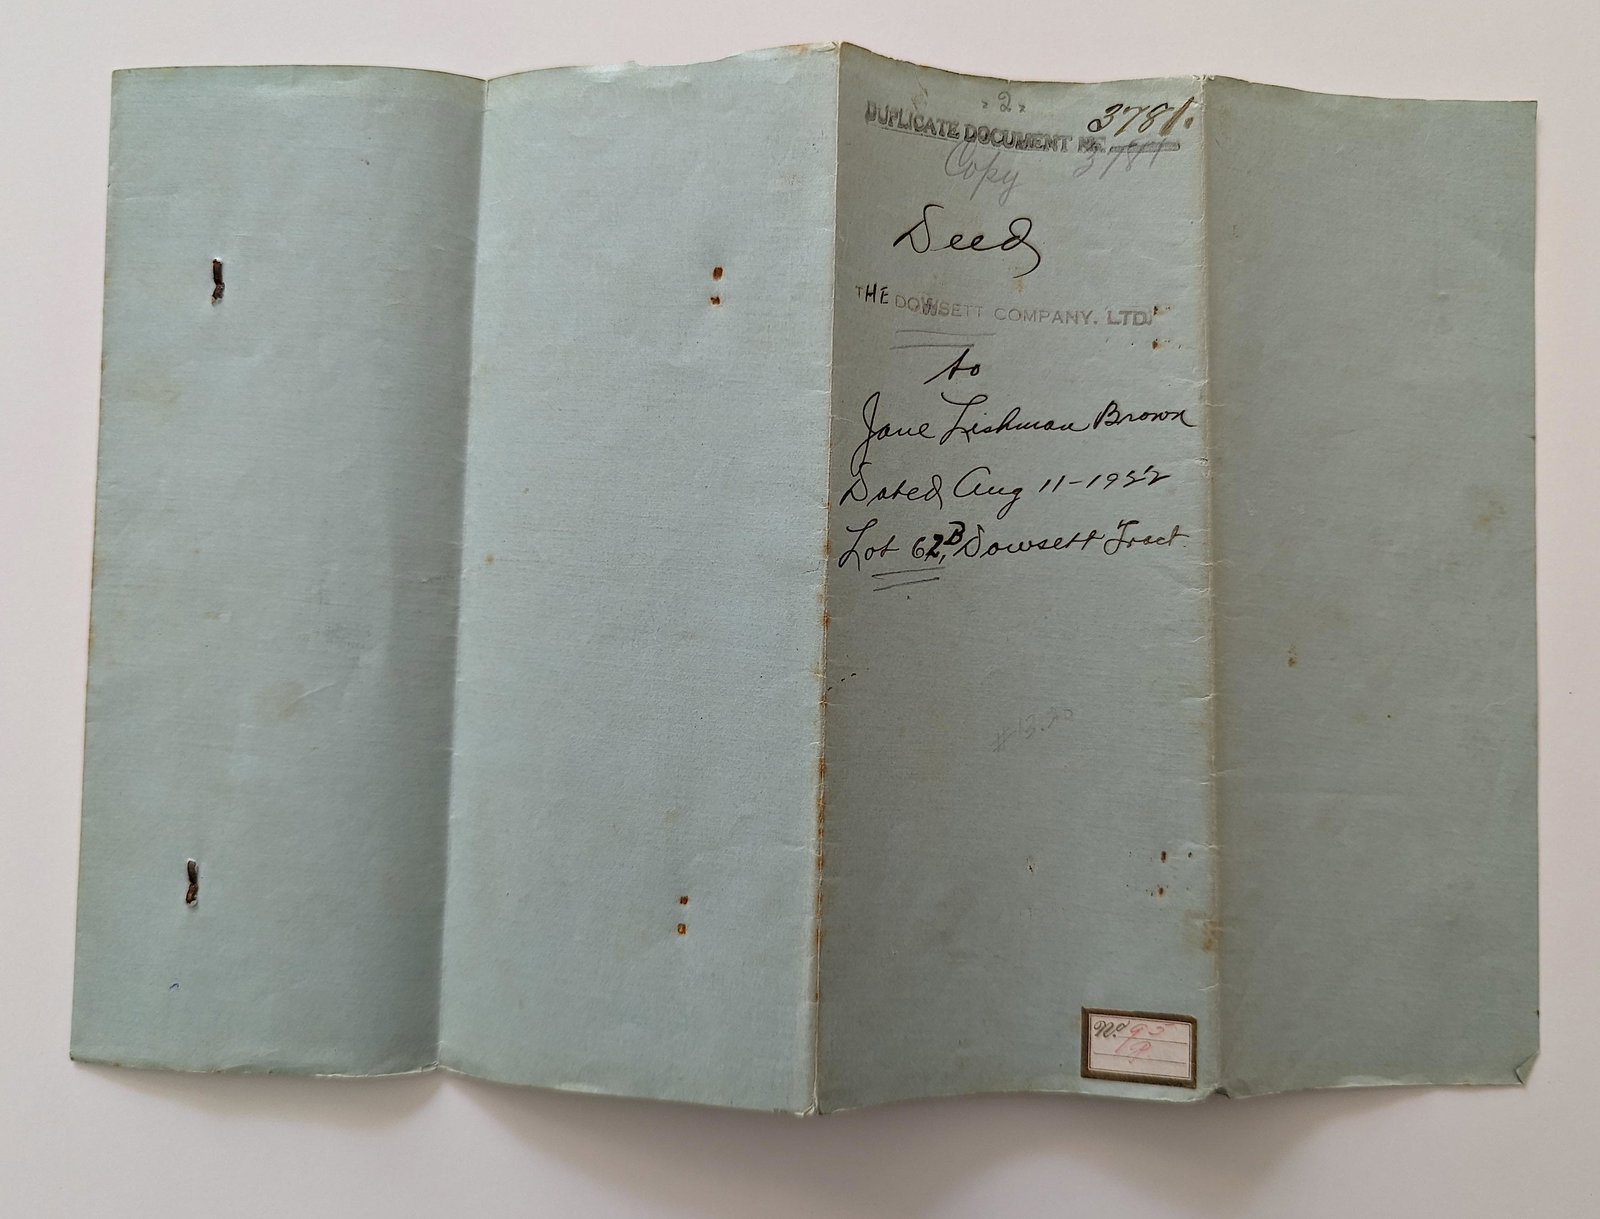 - 2 -
DUPLICATE DOCUMENT No. 3781.
Copy 3781
Deed
THE DOWSETT COMPANY, LTD.
to
Jane Lishman Brown
Dated Aug 11-1922
Lot 62B, Dowsett Tract
No. 95